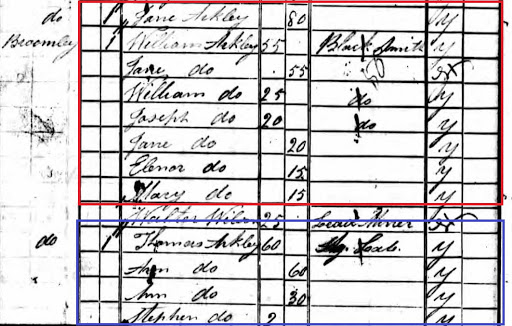 do 1 Jane Arkley 80 y
Broomley 1 William Arkley 55 Black Smith y
Jane do 55
William do 25 do y
Joseph do 20 do y
Jane do 20 y
Elenor do 15 y
Mary do 15 y
Walter Wilson 25 Lead Miner
do 1 Thomas Arkley 60 y
Ann do 60 y
Ann do 30 y
Stephen do 2 y